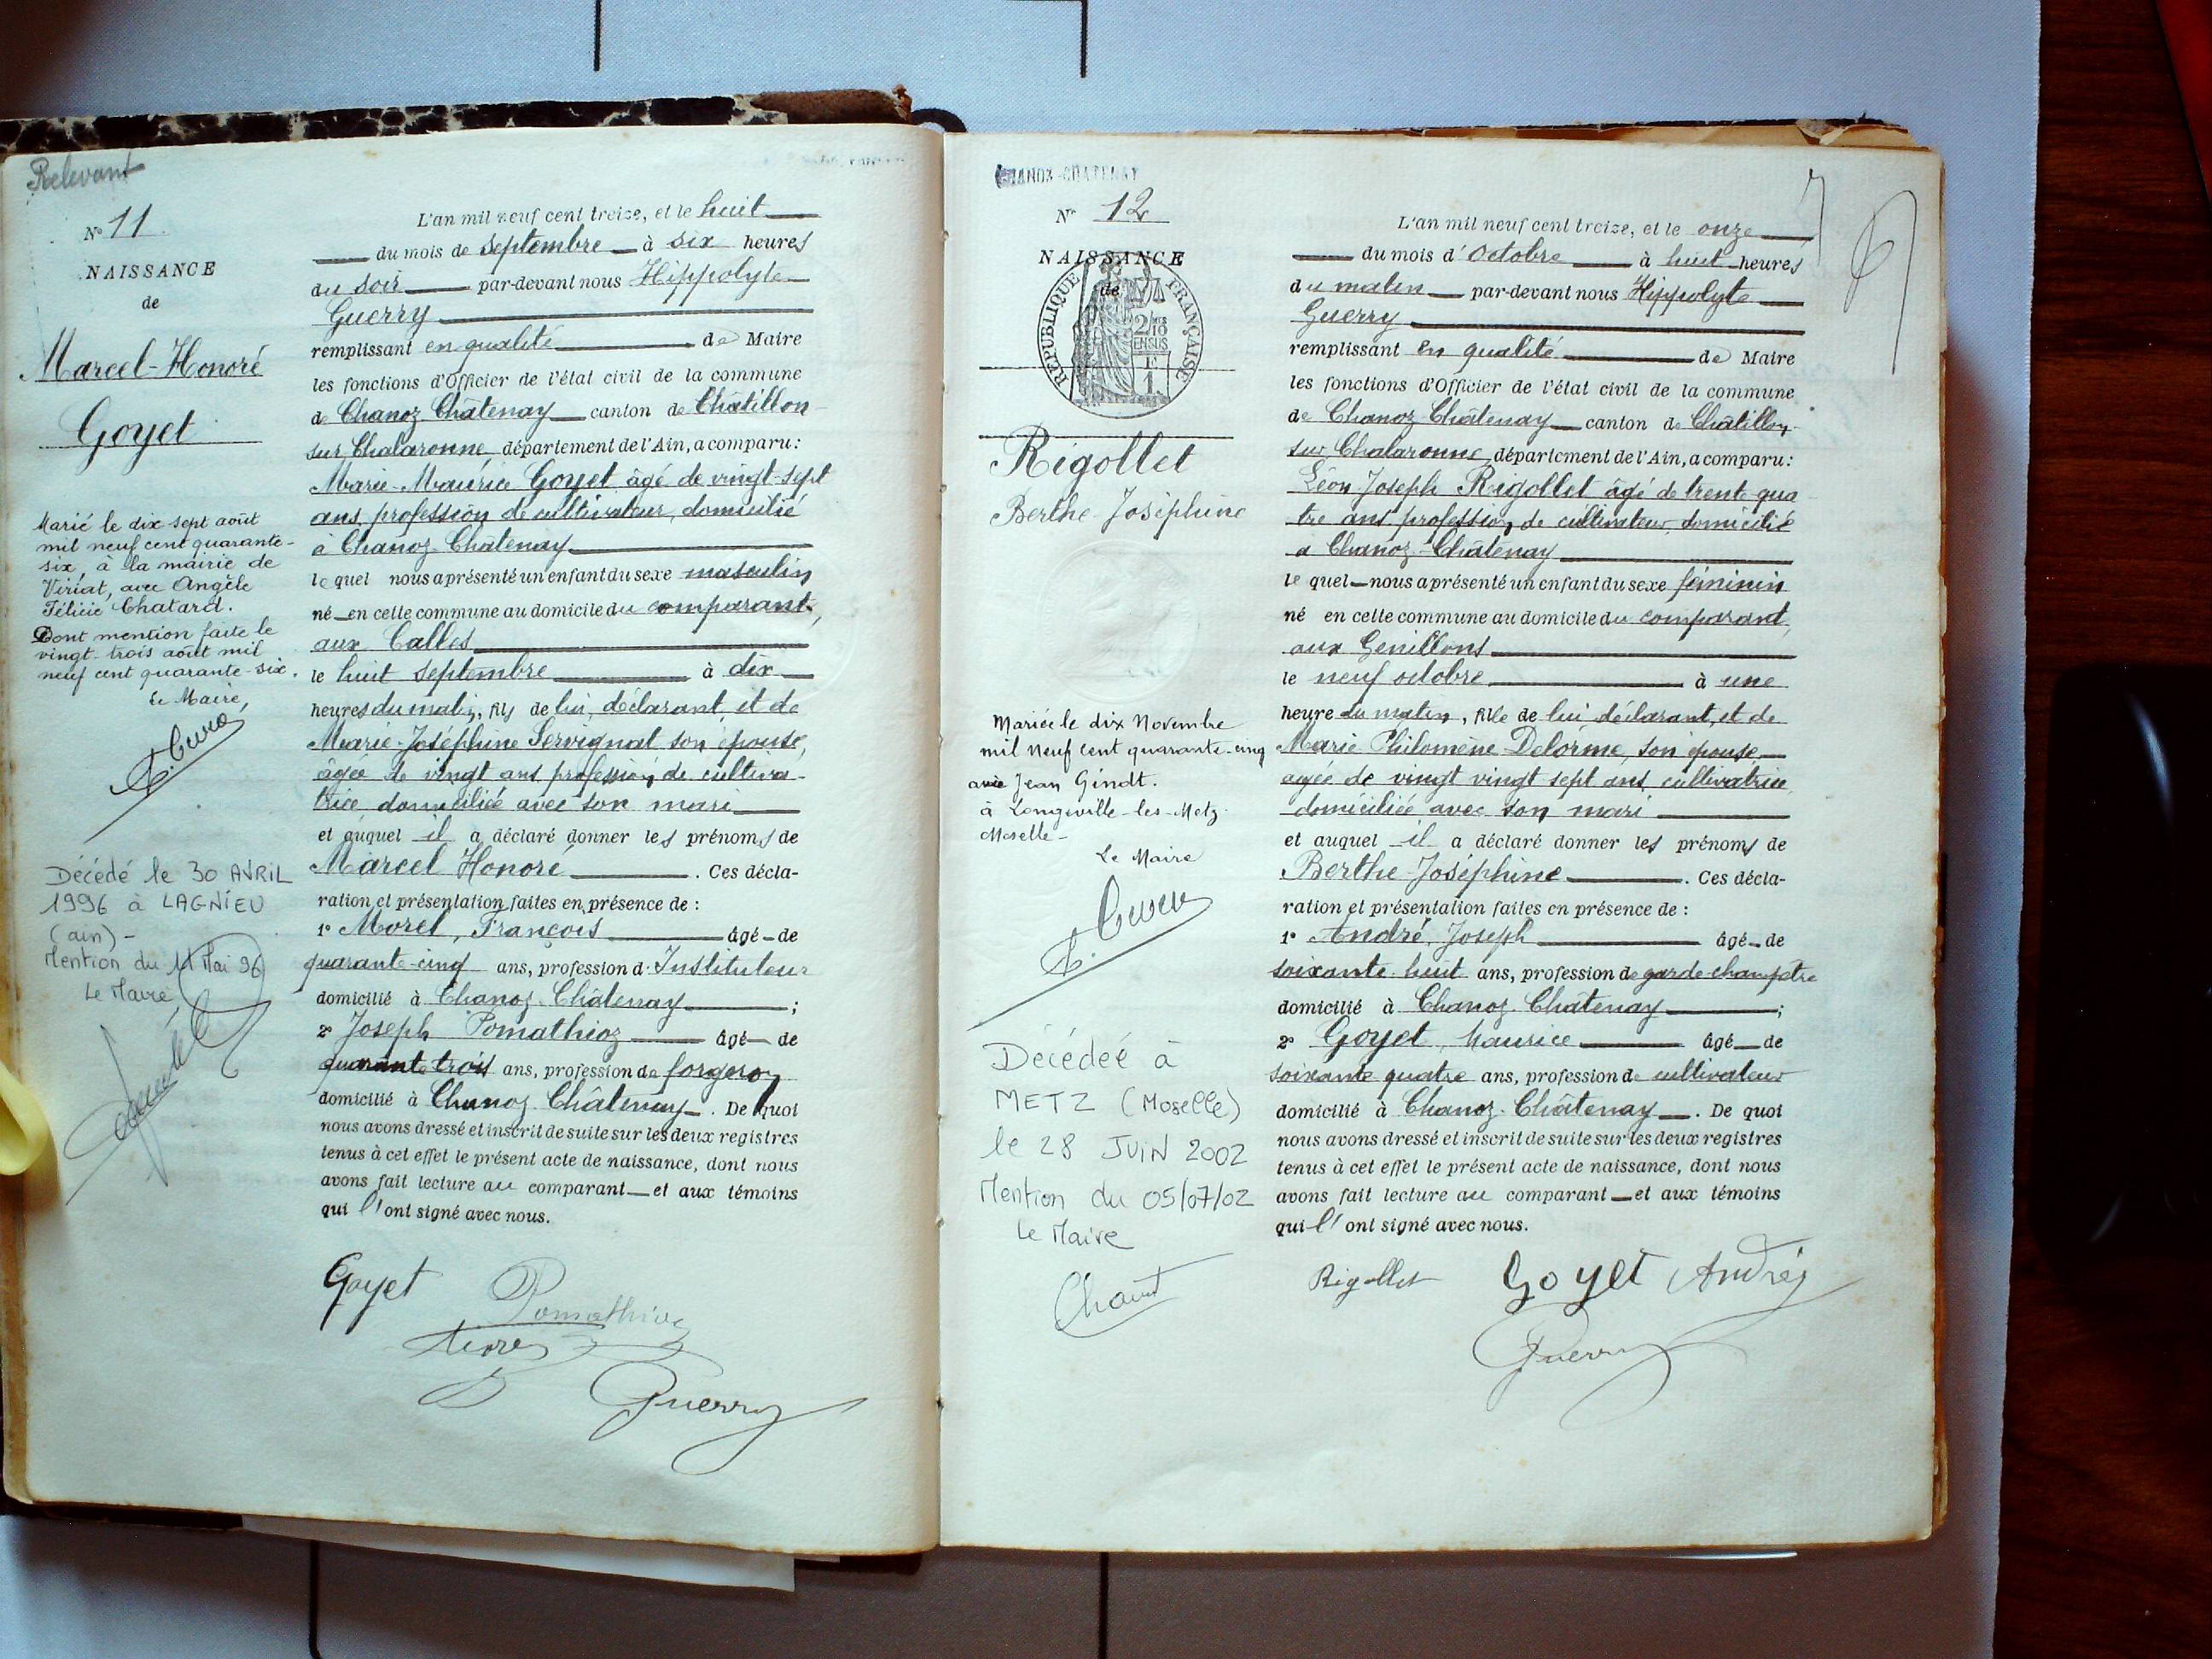 Relevant
N° 11
NAISSANCE
de
Marcel-Honoré
Goyet
Marié le dix sept août
mil neuf cent quarante-
six, à la mairie de
Viriat, avec Angèle
Félicie Chatard.
Dont mention faite le
vingt-trois août mil
neuf cent quarante-six.
Le Maire,
Décédé le 30 AVRIL
1996 à LAGNIEU
(ain) -
Mention du 11 Mai 96
Le Maire,
L'an mil neuf cent treize, et le huit
du mois de Septembre à six heures
du soir par-devant nous Hippolyte
Guerry
remplissant en qualité de Maire
les fonctions d'Officier de l'état civil de la commune
de Chanoz-Châtenay canton de Châtillon-
sur Chalaronne, département de l'Ain, a comparu:
Marie-Maurice Goyet âgé de vingt-sept
ans, profession de cultivateur, domicilié
à Chanoz-Châtenay
lequel nous a présenté un enfant du sexe masculin
né en cette commune au domicile du comparant,
aux Calles
le huit septembre à dix
heures du matin, fils de lui, déclarant, et de
Marie-Joséphine Servignat son épouse,
âgée de vingt ans profession de cultiva-
trice domiciliée avec son mari
et auquel il a déclaré donner les prénoms de
Marcel Honoré. Ces décla-
ration et présentation faites en présence de :
1° Morel, François âgé de
quarante-cinq ans, profession d'Instituteur
domicilié à Chanoz-Châtenay ;
2° Joseph Pomathioz âgé de
quarante trois ans, profession de forgeron
domicilié à Chanoz-Châtenay. De quoi
nous avons dressé et inscrit de suite sur les deux registres
tenus à cet effet le présent acte de naissance, dont nous
avons fait lecture au comparant et aux témoins
qui l'ont signé avec nous.
Goyet Pomathioz
Guerry
CHANOZ-CHATENAY
N° 12
NAISSANCE
de
RÉPUBLIQUE FRANÇAISE
Rigollet
Berthe Joséphine
Mariée le dix Novembre
mil neuf cent quarante-cinq
avec Jean Gindt.
à Longeville-les-Metz-
Moselle-
Le Maire
Décédeé à
METZ (Moselle)
le 28 JUIN 2002
Mention du 05/07/02
Le Maire
L'an mil neuf cent treize, et le onze
du mois d'Octobre à huit heures
du matin par-devant nous Hippolyte
Guerry
remplissant en qualité de Maire
les fonctions d'Officier de l'état civil de la commune
de Chanoz-Châtenay canton de Châtillon-
sur Chalaronne, département de l'Ain, a comparu:
Léon Joseph Rigollet âgé de trente qua
tre ans profession de cultivateur domicilié
à Chanoz-Châtenay
lequel nous a présenté un enfant du sexe féminin
né en cette commune au domicile du comparant,
aux Genillons
le neuf octobre à une
heure du matin, fille de lui déclarant, et de
Marie Philomène Delorme, son épouse
âgée de vingt vingt sept ans, cultivatrice
domiciliée avec son mari
et auquel il a déclaré donner les prénoms de
Berthe-Joséphine. Ces décla-
ration et présentation faites en présence de :
1° André, Joseph âgé de
soixante huit ans, profession de garde champêtre
domicilié à Chanoz-Chatenay ;
2° Goyet, Maurice âgé de
soixante quatre ans, profession de cultivateur
domicilié à Chanoz-Châtenay. De quoi
nous avons dressé et inscrit de suite sur les deux registres
tenus à cet effet le présent acte de naissance, dont nous
avons fait lecture au comparant et aux témoins
qui l'ont signé avec nous.
Rigollet Goyet André
Guerry